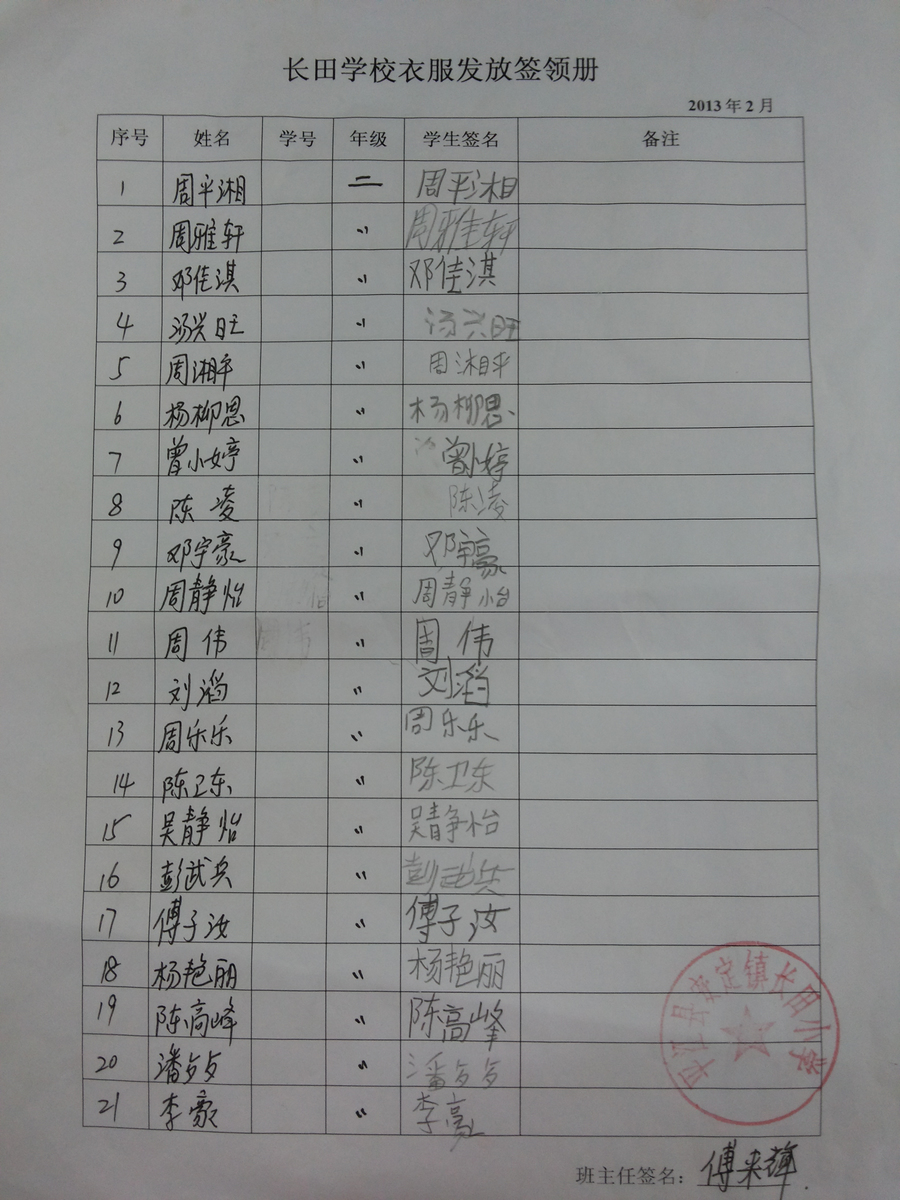 长田学校衣服发放签领册
2013年2月
序号 姓名 学号 年级 学生签名 备注
1 周平湘 二 周平湘
2 周雅轩 〃 周雅轩
3 邓佳淇 〃 邓佳淇
4 汤兴旺 〃 汤兴旺
5 周湘平 〃 周湘平
6 杨柳思 〃 杨柳思
7 曾小婷 〃 曾小婷
8 陈凌 〃 陈凌
9 邓宇豪 〃 邓宇豪
10 周静怡 〃 周静怡
11 周伟 〃 周伟
12 刘滔 〃 刘滔
13 周乐乐 〃 周乐乐
14 陈卫东 〃 陈卫东
15 吴静怡 〃 吴静怡
16 彭武兵 〃 彭武兵
17 傅子汝 〃 傅子汝
18 杨艳丽 〃 杨艳丽
19 陈高峰 〃 陈高峰
20 潘 〃 潘
21 李豪 〃 李豪
平江县安定镇长田小学
班主任签名：傅来辉